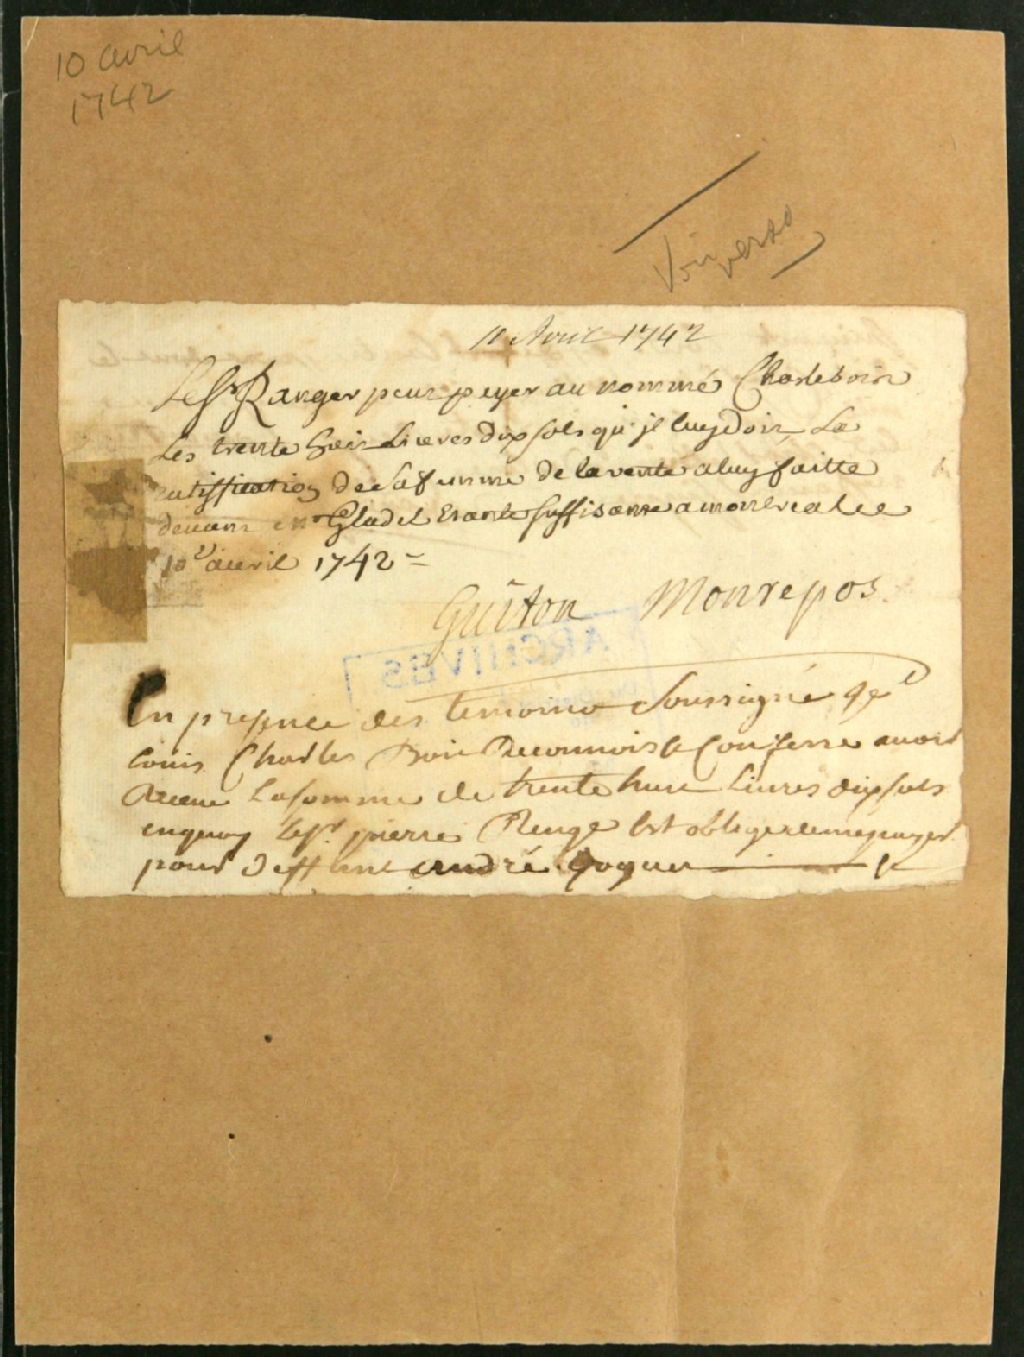 10 avril
1742
Voir verso
10 Avril 1742
Le Sr Ranger peut peyer au nommé Charlebois
Les trente huit Livres dix sols qu'il luy doit, La
ratiffication de sa femme de la vente a luy faitte
devant Me Gladel Etante suffisante a montreal ce
10e avril 1742 =
Guiton Monrepos
ARCHIVES
En presence des temoins Soussigné Je
Louis Charles Bois Reconnois & Confesse avoir
Receu La somme de trente huit Livres dix sols
en quoy le Sr pierre Renge Est obliger
pour deffunt andré